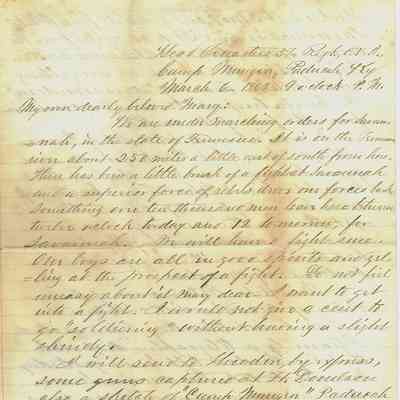 Head Quarters 57 Regt, O.V.I.
Camp Paducah, Ky
March 6, 1862 9 o'clock P.M.
My own dearly beloved Mary:
We are under marching orders for Savan-
nah, in the state of Tennessee. It is on the Tennes
river about 250 miles a little east of south from here.
There has been a little brush of a fight at Savannah
and a superior force of rebels drove our forces back
Something over ten thousand men leave here between
twelve o'clock to day and 12 to-morrow, for
Savannah. We will have a fight sure.
Our boys are all in good spirits and yel-
ling at the prospect of a fight. Do not feel
uneasy about it Mary dear. I want to get
into a fight. I would not give a cent to
go "soldiering" without having a slight
I will send to by express,
some guns captured at Ft. Donelson
also a sketch of "Camp Paducah